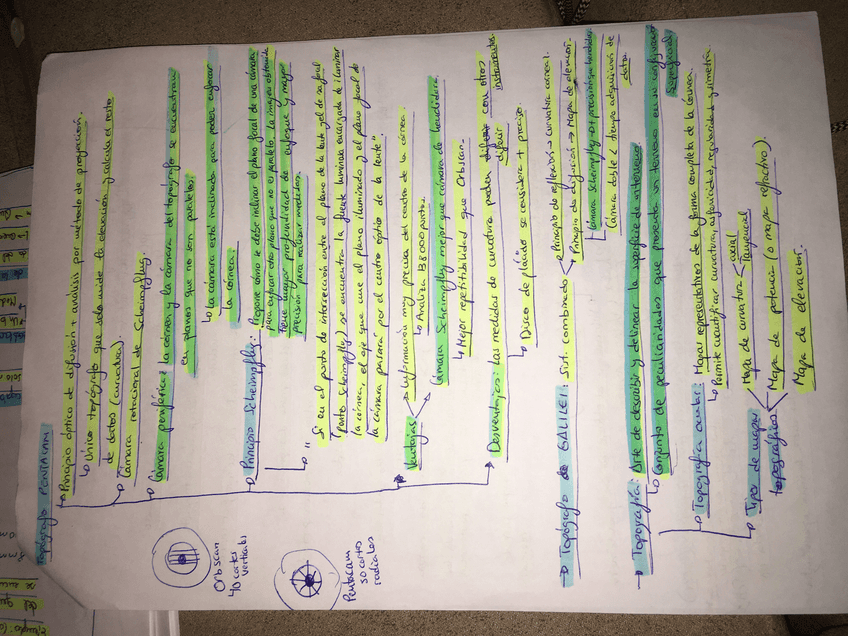 Topógrafo PENTACAM
Principio óptico de difusión + análisis por método de proyección.
Único topógrafo que solo mide la elevación y calcula el resto
de datos (curvatura).
Cámara rotacional de Scheimpflug.
Cámara periférica: la córnea y la cámara del topógrafo se encuentran
en planos que no son paralelos
La cámara está inclinada para poder enfocar
la córnea.
Principio Scheimpflug: Propone cómo se debe inclinar el plano focal de una cámara
para enfocar otro plano que no es paralelo. La imagen obtenida
tiene mayor profundidad de enfoque y mayor
precisión para realizar medidas.
"Si en el punto de intersección entre el plano de la lente y el de su focal
(punto Scheimpflug) se encuentra la fuente luminosa encargada de iluminar
la córnea, el eje que une el plano iluminado y el plano focal de
la cámara pasará por el centro óptico de la lente".
Ventajas
Información muy precisa del centro de la córnea.
Analiza 138000 puntos.
Cámara Scheimpflug mejor que cámara de hendidura
Mejor repetitibilidad que Orbscan.
Desventajas: las medidas de curvatura pueden diferir con otros
instrumentos
Disco de plácido se considera + preciso.
Orbscan
40 cortes
verticales
Pentacam
50 cortes
radiales
Topógrafo de GALILEI: Sist. combinado
Principio de reflexión → curvatura corneal.
Principio de difusión → Mapa de elevación.
Cámara Scheimpflug → + precisión que hendidura
Cámara doble < tiempo adquisición de
data.
Topografía: Arte de describir y delinear la superficie de un terreno
Conjunto de peculiaridades que presenta un terreno en su configuración
superficial
Topografía ocular: Mapas representativos de la forma completa de la córnea.
Permite cuantificar curvatura, asfericidad, regularidad y simetría.
Tipo de mapas
topográficos
Mapa de curvatura
axial
tangencial
Mapa de potencia (o mapa refractivo).
Mapa de elevación.